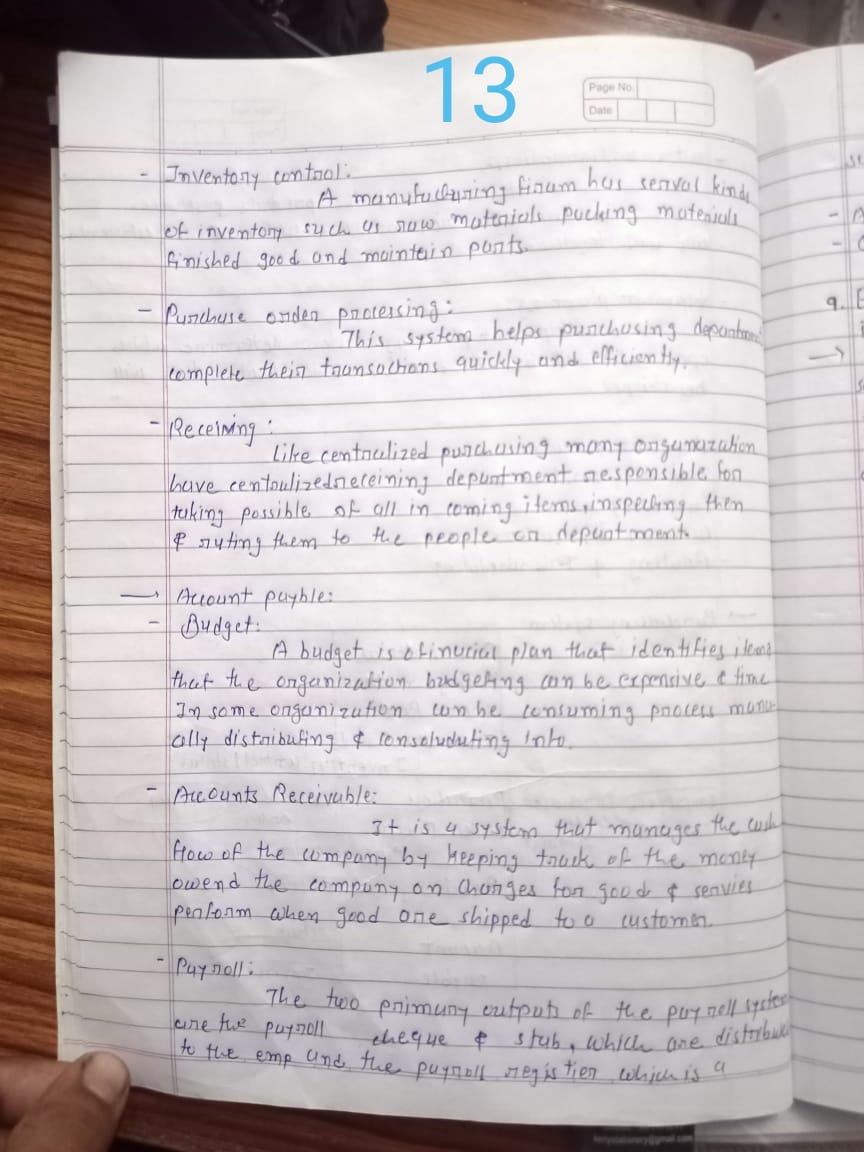 13
Page No.
Date
- Inventory control:
A manufucturing firam has serval kinds
of inventory such as raw materials packing materials
finished good and maintain parts.
- Purchase order processing:
This system helps purchasing departmen
complete their transactions quickly and efficiently.
- Receiving:
Like centralized purchasing many organization
have centoulized receining department responsible for
taking possible of all in coming items, inspecting then
& ruting them to the people or department.
→ Account payble:
- Budget:
A budget is plan that identifies items
that the organization budgeting can be expensive & time
In some organization can be consuming process manu
ally distributing & consoludating into.
- Accounts Receivable:
It is a system that manages the cash
flow of the company by keeping track of the money
owend the company on charges for good & servies
perform when good are shipped to a customer.
- Payroll:
The two primary outputs of the payroll syste
are the payroll cheque & stub, which are distribu
to the emp and the payroll registier which is a
st
9.
→